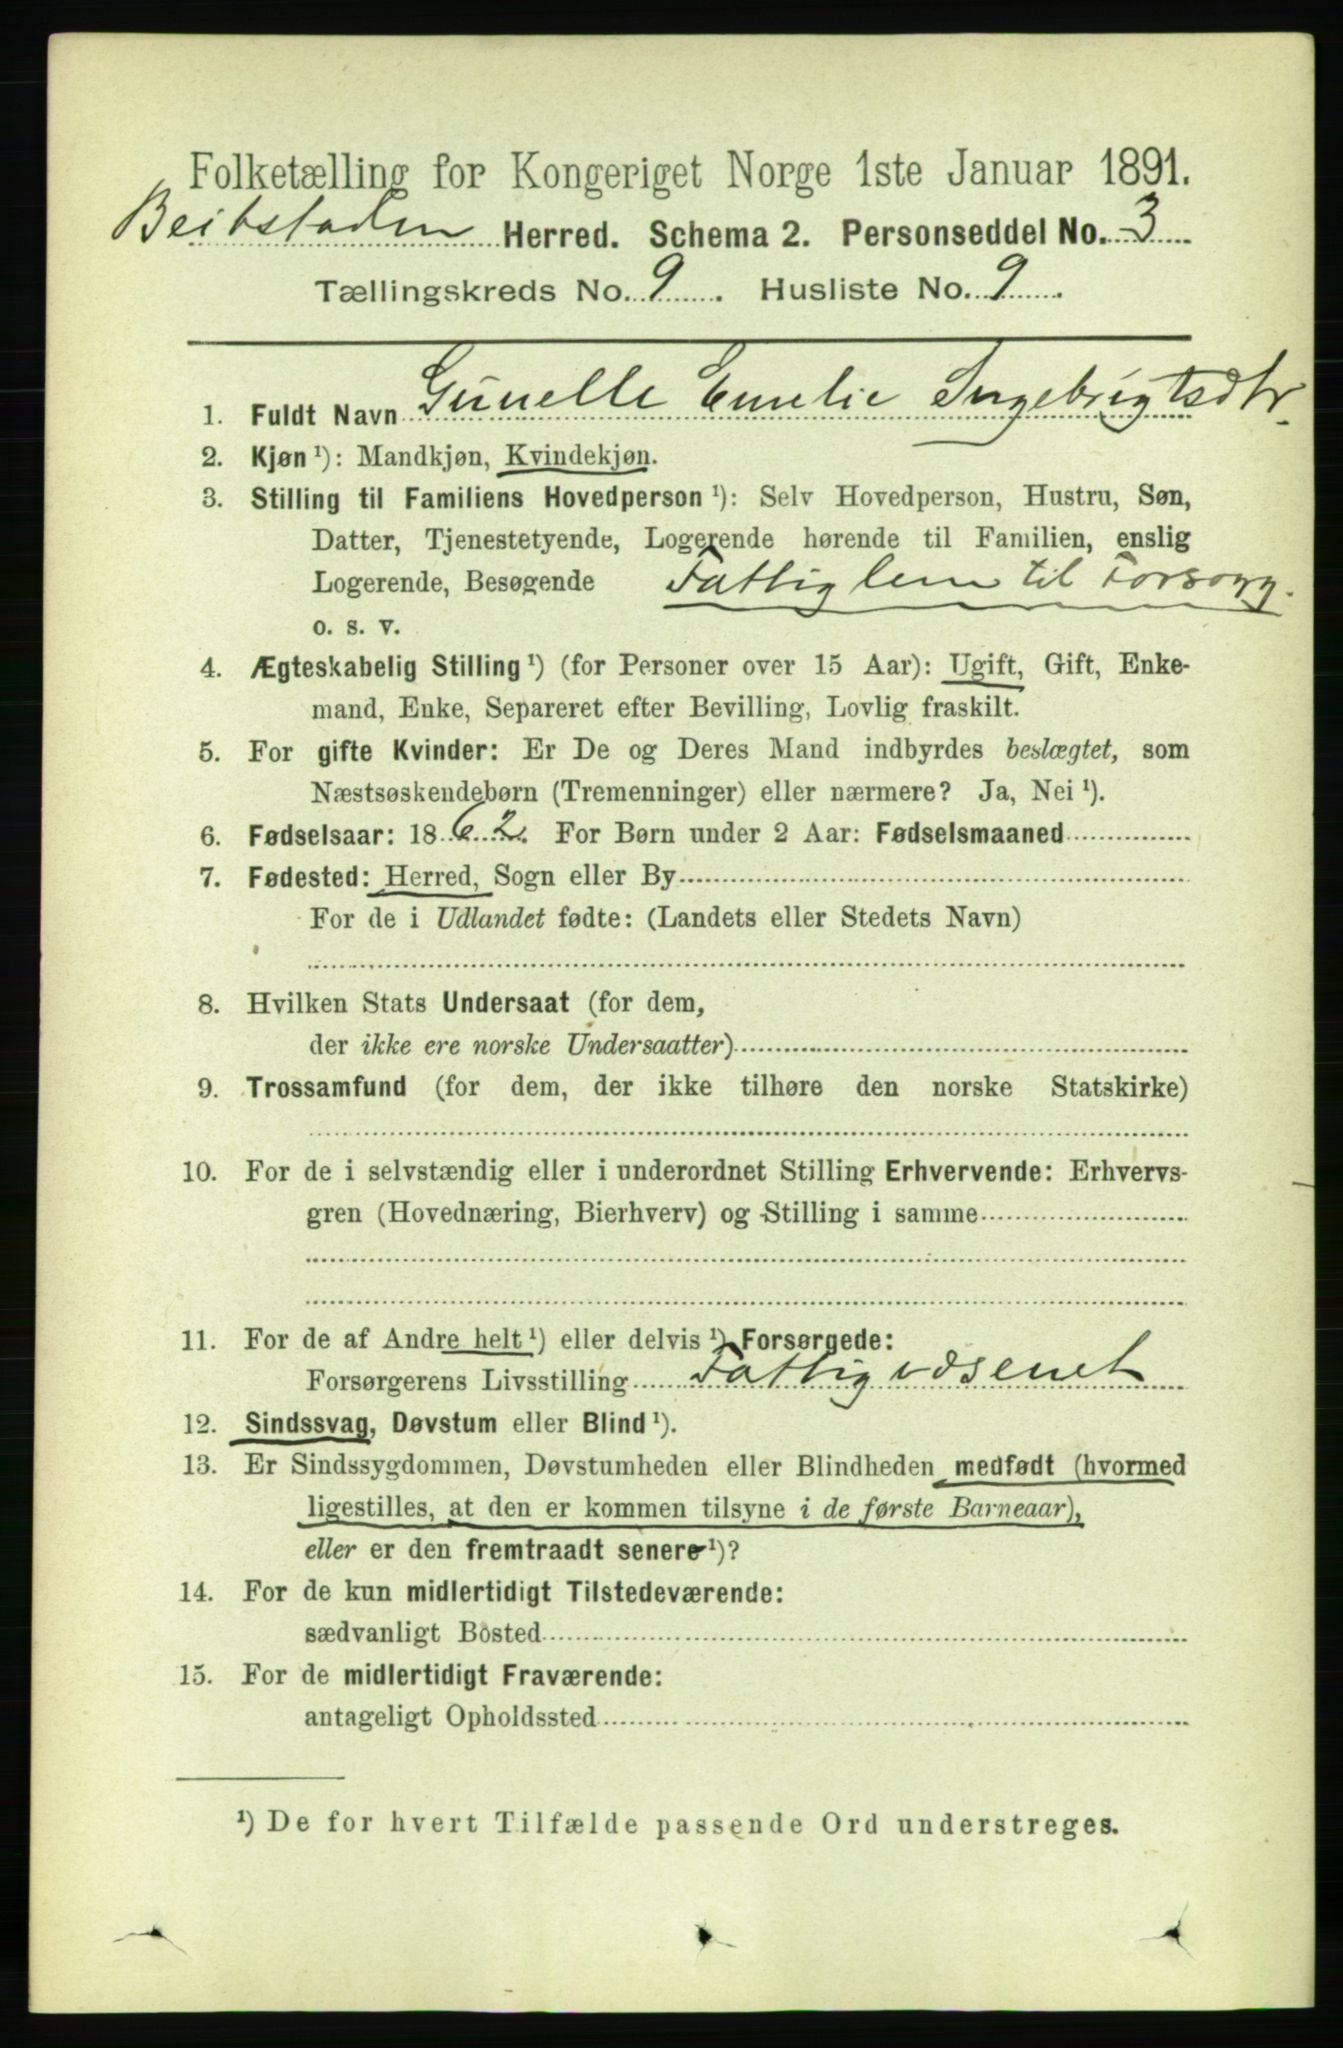 Folketælling for Kongeriget Norge 1ste Januar 1891.
Beitstaden Herred. Schema 2. Personseddel No. 3
Tællingskreds No. 9. Husliste No. 9.
1. Fuldt Navn Gunelle Emelie Ingebrigtsdtr.
2. Kjøn ¹): Mandkjøn, Kvindekjøn.
3. Stilling til Familiens Hovedperson ¹): Selv Hovedperson, Hustru, Søn,
Datter, Tjenestetyende, Logerende hørende til Familien, enslig
Logerende, Besøgende Fattiglem til Forsorg.
o. s. v.
4. Ægteskabelig Stilling ¹) (for Personer over 15 Aar): Ugift, Gift, Enke-
mand, Enke, Separeret efter Bevilling, Lovlig fraskilt.
5. For gifte Kvinder: Er De og Deres Mand indbyrdes beslægtet, som
Næstsøskendebørn (Tremenninger) eller nærmere? Ja, Nei ¹).
6. Fødselsaar: 1862. For Børn under 2 Aar: Fødselsmaaned
7. Fødested: Herred, Sogn eller By
For de i Udlandet fødte: (Landets eller Stedets Navn)
8. Hvilken Stats Undersaat (for dem,
der ikke ere norske Undersaatter)
9. Trossamfund (for dem, der ikke tilhøre den norske Statskirke)
10. For de i selvstændig eller i underordnet Stilling Erhvervende: Erhvervs-
gren (Hovednæring, Bierhverv) og Stilling i samme
11. For de af Andre helt ¹) eller delvis ¹) Forsørgede:
Forsørgerens Livsstilling Fattigvæsenet
12. Sindssvag, Døvstum eller Blind ¹).
13. Er Sindssygdommen, Døvstumheden eller Blindheden medfødt (hvormed
ligestilles, at den er kommen tilsyne i de første Barneaar),
eller er den fremtraadt senere ¹)?
14. For de kun midlertidigt Tilstedeværende:
sædvanligt Bosted
15. For de midlertidigt Fraværende:
antageligt Opholdssted
¹) De for hvert Tilfælde passende Ord understreges.